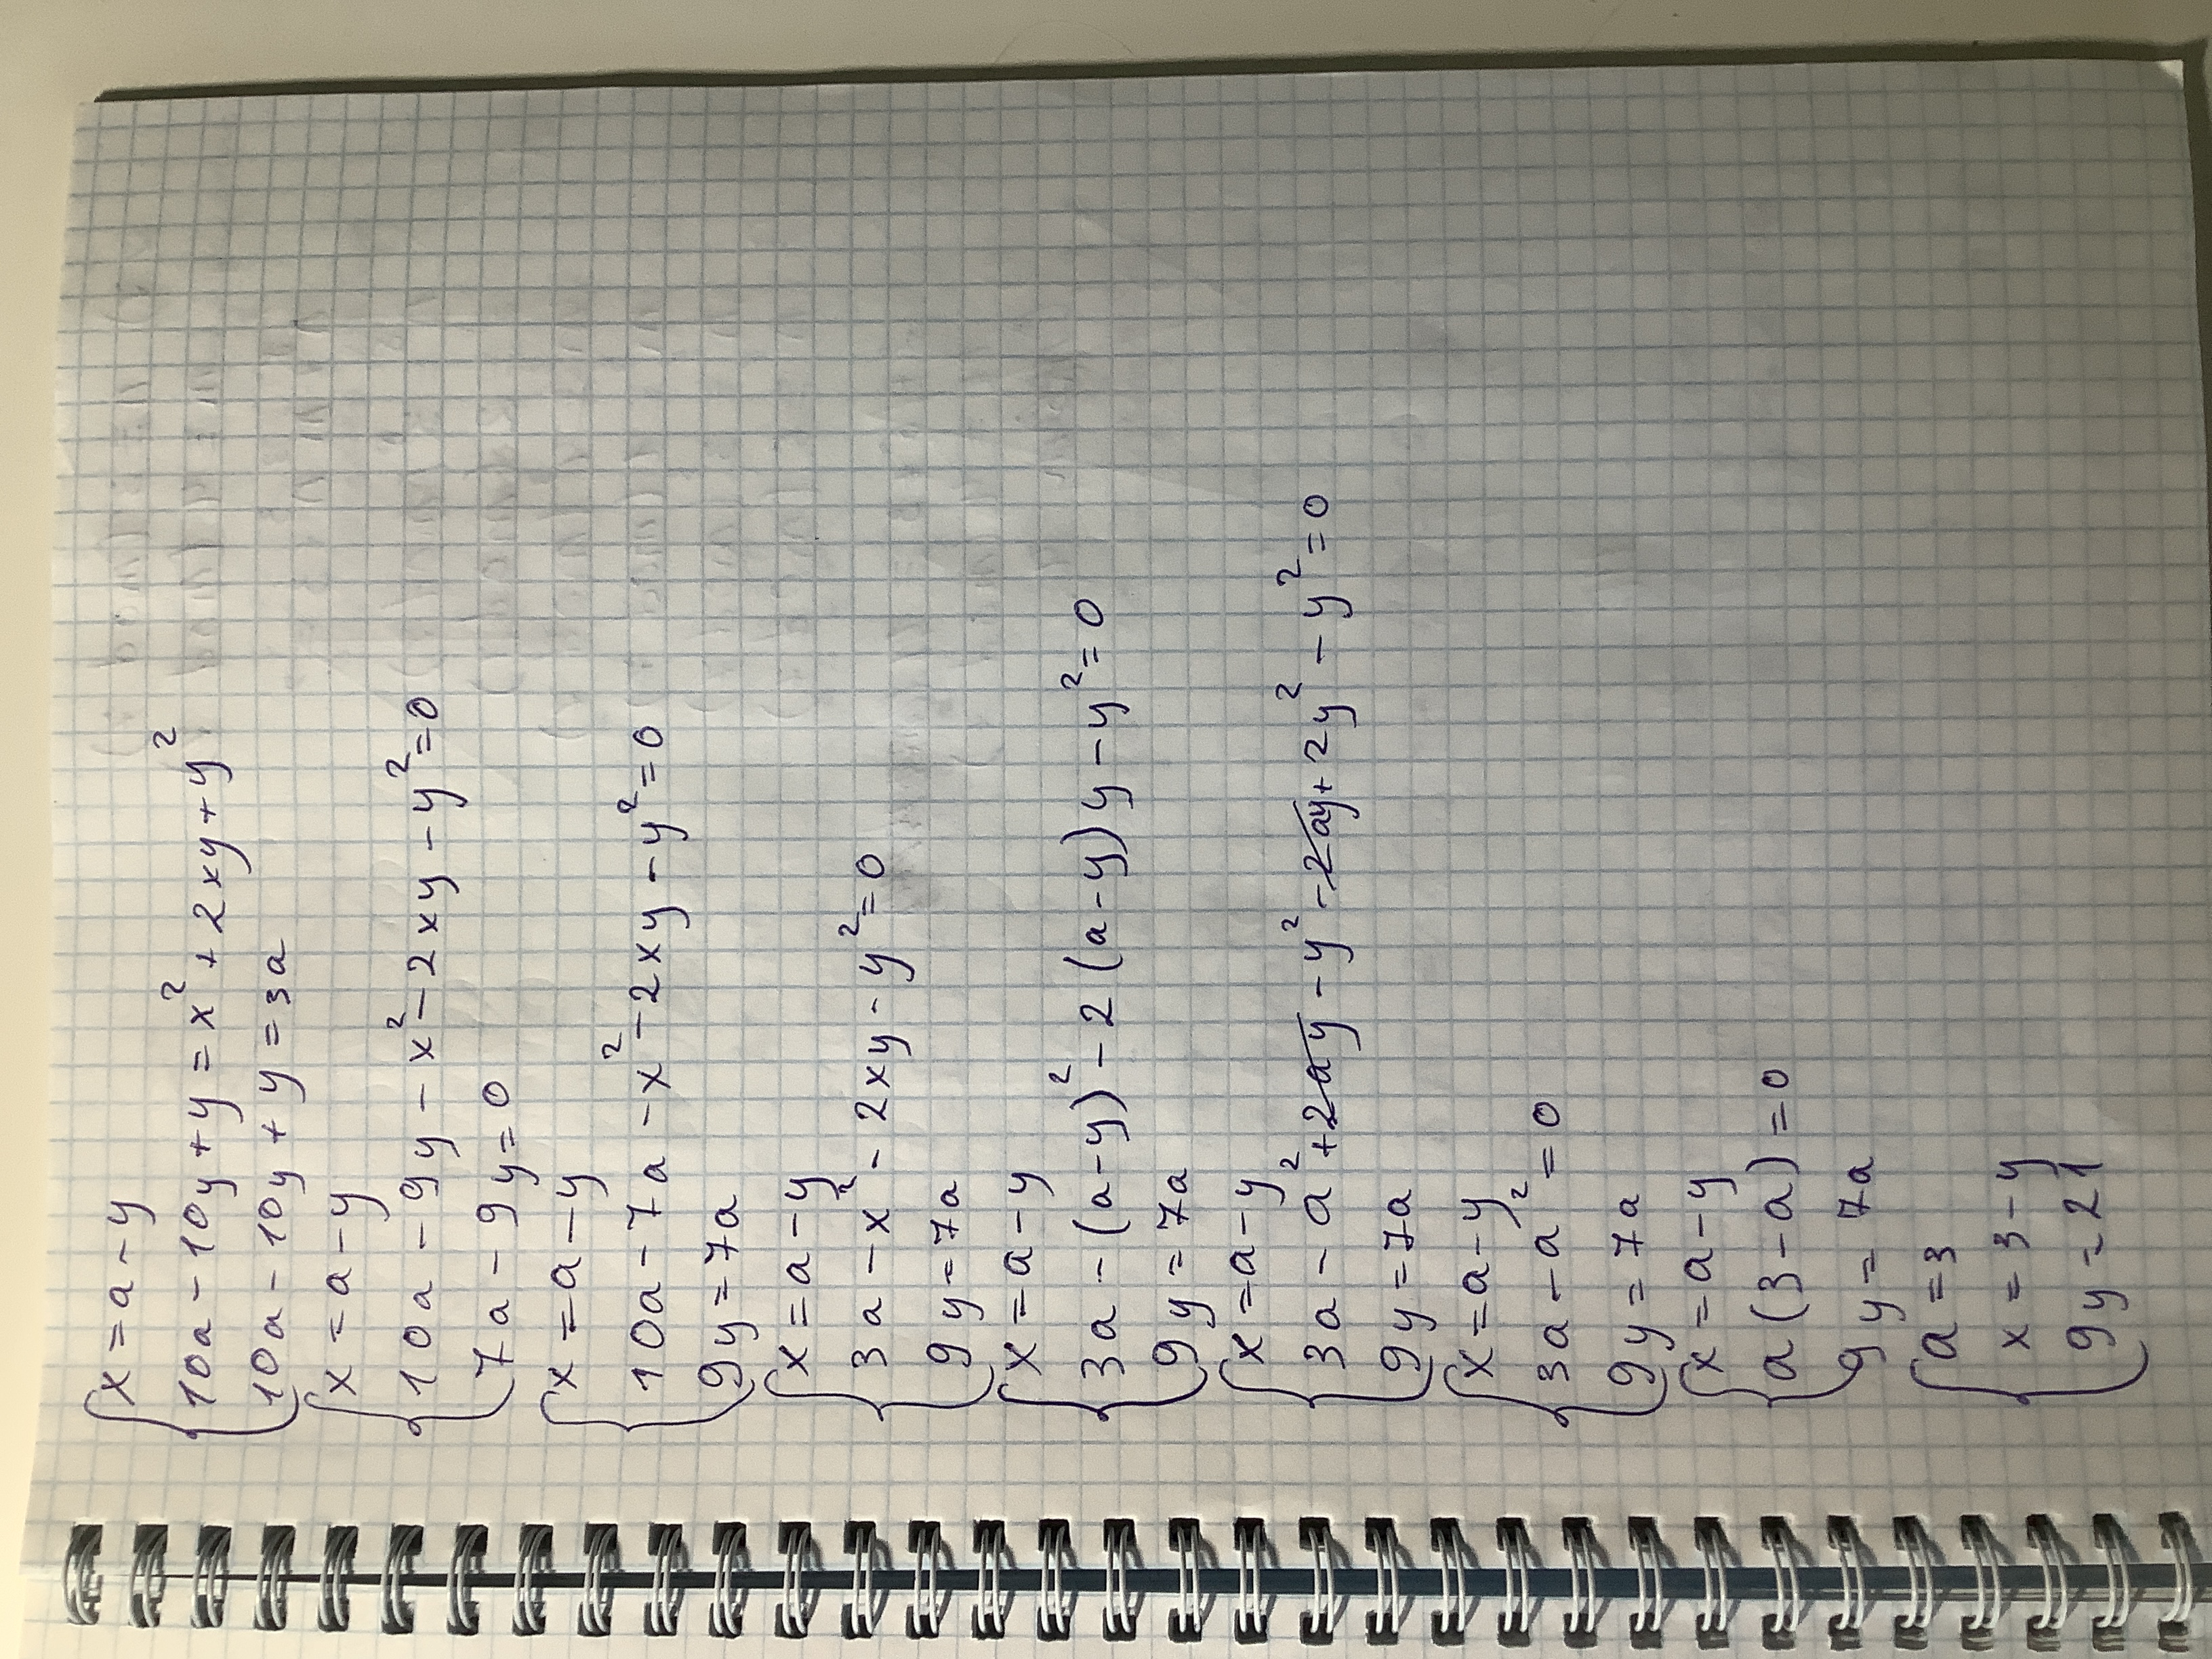 x = a - y
10a - 10y + y = x² + 2xy + y²
10a - 10y + y = 3a
x = a - y
10a - 9y - x² - 2xy - y² = 0
7a - 9y = 0
x = a - y
10a - 7a - x² - 2xy - y² = 0
9y = 7a
x = a - y
3a - x² - 2xy - y² = 0
9y = 7a
x = a - y
3a - (a - y)² - 2(a - y)y - y² = 0
9y = 7a
x = a - y
3a - a² + 2ay - y² - 2ay + 2y² - y² = 0
9y = 7a
x = a - y
3a - a² = 0
9y = 7a
x = a - y
a(3 - a) = 0
9y = 7a
a = 3
x = 3 - y
9y = 21